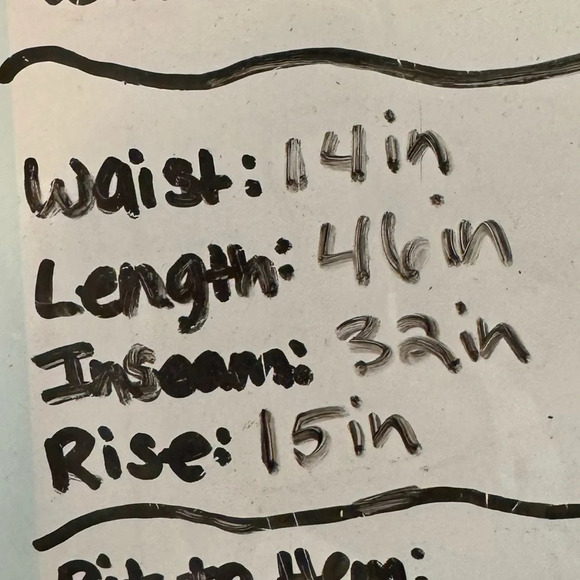 Waist: 14in
Length: 46in
Inseam: 32in
Rise: 15in
Pit to Hem: